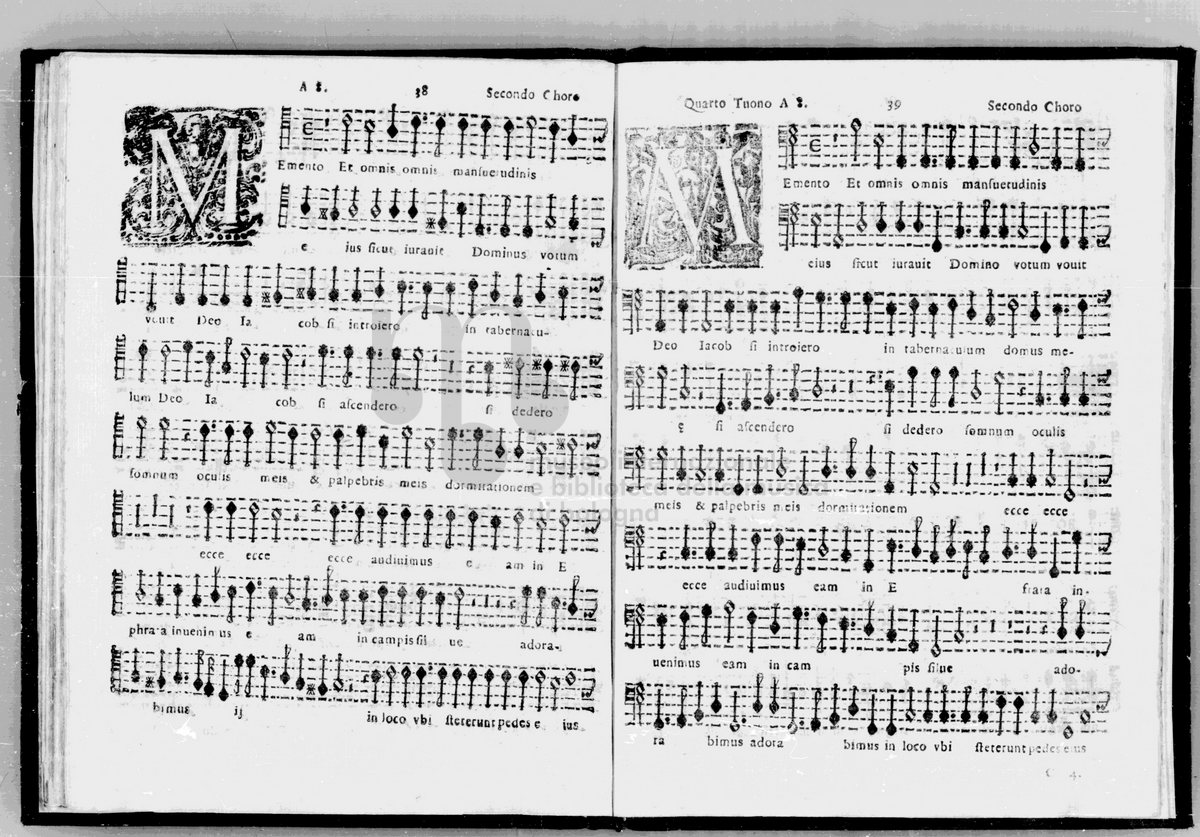 A 8. 38 Secondo Choro
M
Emento Et omnis omnis manſuetudinis
e ius ſicut iurauit Dominus votum
vouit Deo Ia cob ſi introiero in tabernacu-
lum Deo Ia cob ſi aſcendero ſi dedero
ſomnum oculis meis & palpebris meis dormitationem
ecce ecce ecce audiuimus e am in E
phrata inuenimus e am in campis ſil ue adora-
bimus ij in loco vbi ſteterunt pedes e ius
Quarto Tuono A 8. 39 Secondo Choro
M
Emento Et omnis omnis manſuetudinis
eius ſicut iurauit Domino votum vouit
Deo Iacob ſi introiero in tabernaculum domus me-
ę ſi aſcendero ſi dedero ſomnum oculis
meis & palpebris meis dormitationem ecce ecce
ecce audiuimus eam in E frata in-
uenimus eam in cam pis ſilue ado-
ra bimus adora bimus in loco vbi ſteterunt pedes eius
C 4.
museo
e biblioteca della musica
di bologna